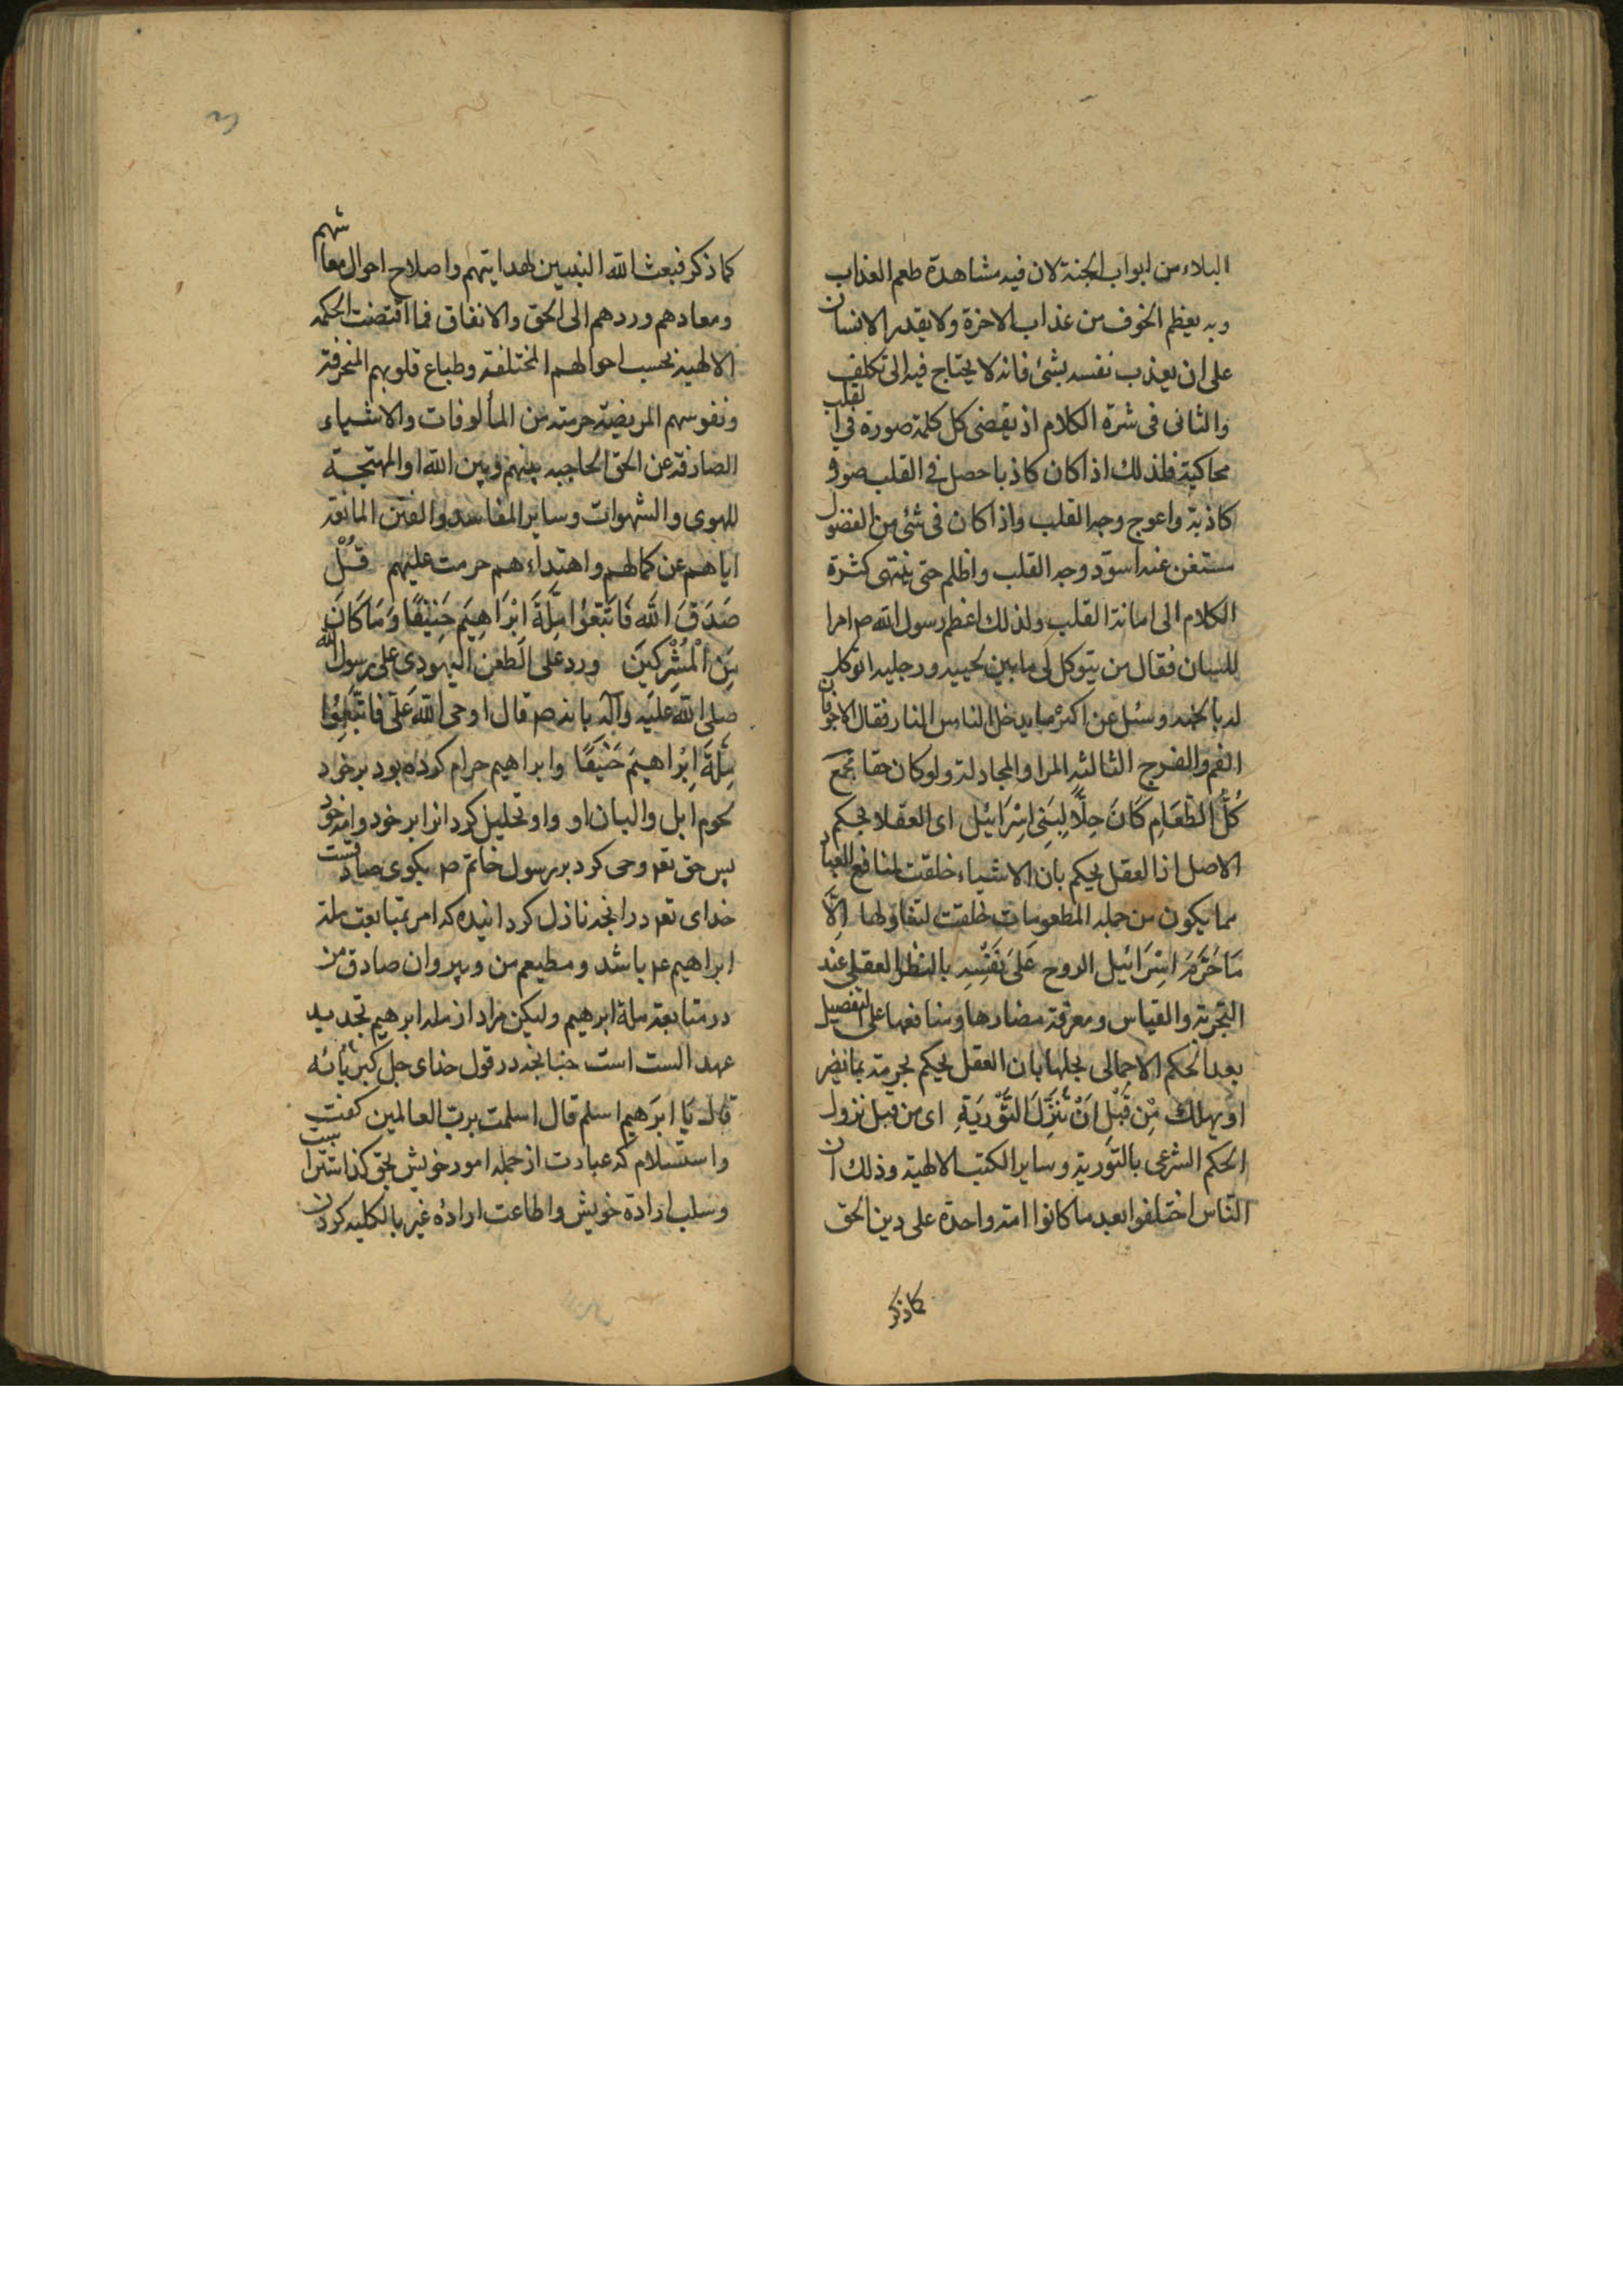 البلاء من ابواب الجنة لان فيه مشاهدة طعم العذاب
وبه يعظم الخوف من عذاب الاخرة ولا يقدر الانسان
على ان يعذب نفسه بشئ فانه لا يحتاج فيه الى تكلف
والثانى فى شرة الكلام اذ يقتضى كل كلمة صورة فى القلب
محاكية فلذلك اذا كان كاذبا حصل فى القلب صورة
كاذبة واعوج وجه القلب واذا كان فى شئ من الفضول
مستغن عنه اسود وجه القلب واظلم حتى ينتهى كثرة
الكلام الى اماتة القلب ولذلك اعظم رسول الله ص امرا
للسان فقال من يتوكل لى ما بين لحييه ورجليه اتوكل
له بالجنه وسئل عن اكثر ما يدخل الناس النار فقال الاجوفان
الفم والفرج الثالثه المرا والمجادلة ولو كان حقا
كُلُّ الطَّعَامِ كَانَ حِلًّا لِبَنِى اِسْرَائيْل اى العقلا بحكم
الاصل اذ العقل يحكم بان الاشياء خلقت لمنافع العباد
مما يكون من جمله المطعومات خلقت لتفاولها اِلَّا
مَا حَرَّمَ اِسْرَائيْل الروح عَلَىٰ نَفْسِهِ بالنظر العقلى عند
التجربة والقياس ومعرفة مضارها ومنافعها على التفصيل
بعد الحكم الاجمالى بجلها بان العقل يحكم بحرمة ما يضر
او يهلك مِنْ قَبْلِ اَنْ تُنَزَّلَ التَّوْرَيٰةِ اى من قبل نزول
الحكم الشرعى بالتورية وساير الكتب الالهية وذلك ان
النّاس اختلفوا بعد ما كانوا امة واحدة على دين الحق
كما ذكر
كما ذكر فبعث الله النبيين لهدايتهم واصلاح احوال معاشهم
ومعادهم وردهم الى الحق والاتفاق فما اقتضت الحكمه
الالهية بحسب احوالهم المختلفة وطباع قلوبهم المنحرفة
ونفوسهم المريضة حرمته من المألوفات والاشياء
الصارفة عن الحق الحاجبه بينهم وبين الله او المهتجة
للهوى والشهوات وساير المفاسد والفتن المانعة
اياهم عن كمالهم واهتداءهم حرمت عليهم قُلْ
صَدَقَ اللّه فَاتَّبِعُوا مِلَّةَ اِبْرَاهِيمَ حَنِيْفًا وَمَا كَانَ
مِنَ الْمُشْرِكِينَ ورد على الطعن اليهودى على رسول الله
صلى اللّه عليه وآله بانه ص قال اوحى اللّه علَىّ فاتَّبِعُوا
مِلَّةَ اِبْرَاهيمَ حَنِيْفًا وابراهيم حرام كرده بود بر خود
لحوم ابل والبان او واو تحليل كرد انرا بر خود وامة خود
پس حق تعم وحى كرد بر رسول خاتم ص بكوى صادقست
خداى تعم در انچه نازل كردانيده كه امر بمتابعت ملة
ابراهيم عم باشد ومطيعم من وپيروان صادق من
در متابعة ملة ابرهيم وليكن مراد از مله ابرهيم تجديد
عهد الست است چنانچه در قول خداى جل كبريائه
قال يَا ابرَهيم اسلم قال اسلمت برب العالمين كفت
واستسلام كه عبادت از جمله امور خويش بحق كذاشتن است
وسلب ارادة خويش واطاعت ارادۀ غير بالكليه كردن